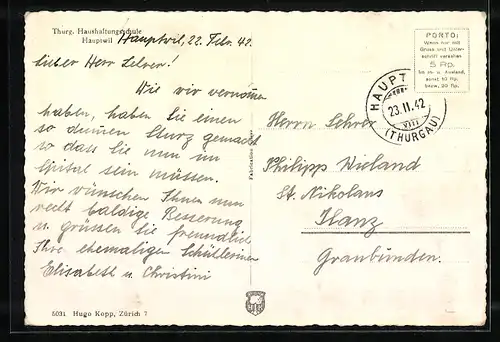 Thurg. Haushaltungsschule
Hauptwil
Hauptwil, 22. Febr. 42.
Lieber Herr Lehrer!
Wie wir vernommen
haben, haben Sie einen
so dummen Sturz gemacht
so dass Sie nun im
Spital sein müssen.
Wir wünschen Ihnen nun
recht baldige Besserung
u grüssen Sie freundlich
Ihre ehemaligen Schülerinnen
Elisabeth u. Christini
PORTO:
Wenn nur mit
Gruss und Unter-
schrift versehen
5 Rp.
im In- u. Ausland,
sonst 10 Rp.
bezw. 20 Rp.
HAUPT
23.II.42
VIII
(THURGAU)
Herrn Lehrer
Philipp Wieland
St. Nikolaus
Ilanz
Graubünden.
5031 Hugo Kopp, Zürich 7